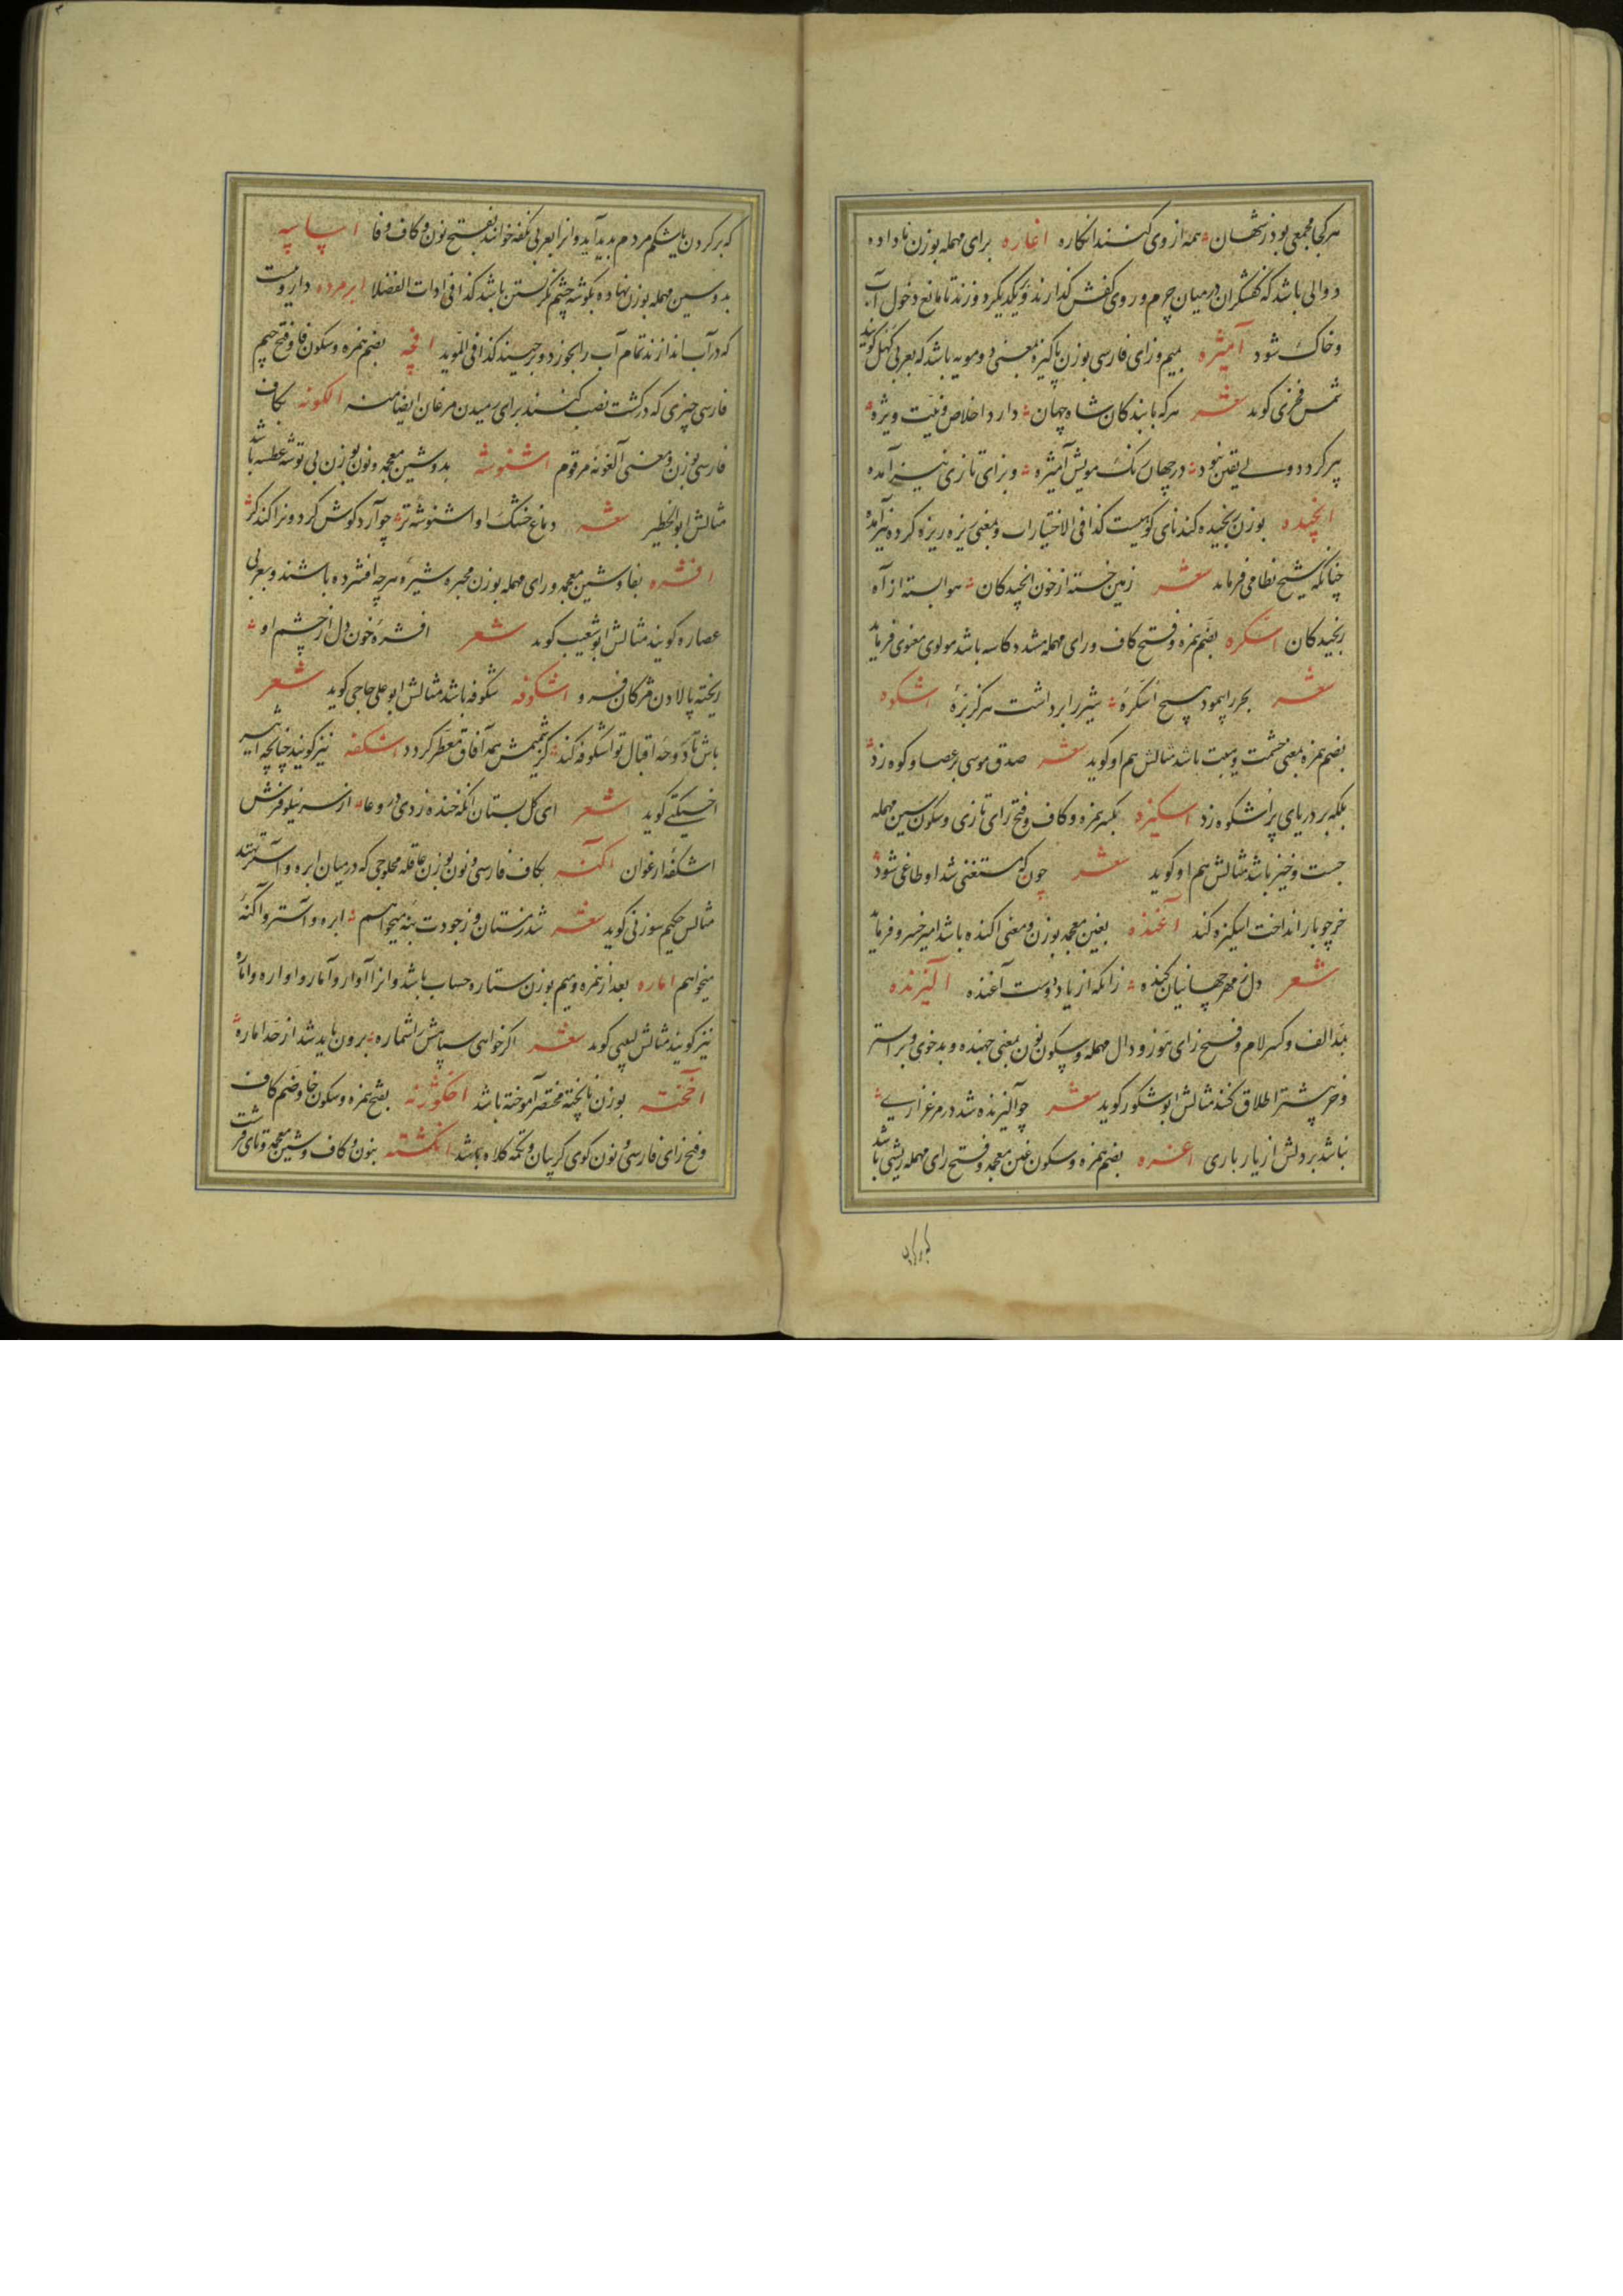 هر کجا مجمعی بود ز شهان همه از وی کنند انکاره اغاره برای مهمله بوزن ناداده
دوالی باشد که کفشگران در میان چرم و روی کفش گذارند و یکدیگر دوزند تا مانع دخول آب
و خاک شود آمیژه بمیم و زای فارسی بوزن پاکیزه بمعنی دو مویه باشد که بعربی کهل گویند
شمس فخری گوید شعر هر که با بندکان شاه جهان دارد اخلاص و نیت ویژه
پیر کردد ولی یقین نبود در جهان یک مویش آمیژه و بزای تازی نیز آمده
انجیده بوزن رنجیده گندنای کوهیست کذا فی الاختیارات و بمعنی ریزه ریزه کرده نیز آمده
چنانکه شیخ نظامی فرماید شعر زمین خسته از خون انجیدکان هوا بسته از آه
رنجیدکان اسکره بضم همزه و فتح کاف و رای مهمله مشدد کاسه باشد مولوی معنوی فرماید
شعر بحر را پیمود هیچ اسکرهٔ شیر را برداشت هرگز بزهٔ اشکوه
بضم همزه بمعنی حشمت و هیبت باشد مثالش هم او گوید شعر صدق موسی بر عصا و کوه زد
بلکه بر دریای پر اشکوه زد اسکیزه بکسر همزه و کاف و فتح زای تازی و سکون سین مهمله
جست و خیز باشد مثالش هم او گوید شعر چون که مستغنی شد او طاغی شود
خر چو بار انداخت اسکیزه کند آغنده بغین معجمه بوزن و معنی اکنده باشد امیر خسرو فرماید
شعر دل ز مهر جهانیان کنده زانکه از یاد دوست آغنده آلیزنده
بمد الف و کسر لام و فتح زای هوز و دال مهمله و سکون نون بمعنی جهنده و بدخوی و بر استر
و خر بیشتر اطلاق کنند مثالش ابو شکور گوید شعر چو آلیزنده شد در مرغزاری
نباشد بر دلش از یار باری اغره بضم همزه و سکون غین معجمه و فتح رای مهمله ریشی باشد
که بر گردن یا شکم مردم پدید آید و انرا بعربی نکفه خوانند بفتح نون و کاف و فا اپاسه
بدو سین مهمله بوزن نهاوه بگوشه چشم نگرستن باشد کذا فی ادات الفضلا ابرمرده داروییست
که در آب اندازند تمام آب را بخورد و برچیند کذا فی الموید افچه بضم همزه و سکون فا و فتح جیم
فارسی چیزی که در کشت نصب کنند برای رمیدن مرغان ایضا منه الکونه بکاف
فارسی بوزن و معنی آلغونه مرقوم اشنوشه بدو شین معجمه و نون بوزن بی توشه عطسه باشد
مثالش ابو الخطیر شعر دماغ خشک او اشنوشه تر چو آرد گوش گردون را کند کر
افشره بفا و شین معجمه و رای مهمله بوزن مجبره شیره هر چه افشرده باشند و بعربی
عصاره گویند مثالش ابو شعیب گوید شعر افشرهٔ خون دل از چشم او
ریخته پالادن مژگان فرو اشکوفه شکوفه باشد مثالش ابو علی حاجی گوید شعر
باش تا دوحهٔ اقبال تو اشکوفه کند کز شمیمش همه آفاق معطر کردد اشکفه نیز گویند چنانچه اثیر
اخسیکتی گوید شعر ای گل بستان انکه خنده زدی در وعا از سر نیلوفرش
اشکفهٔ ارغوان اکنه بکاف فارسی و نون بوزن عاقله محلوجی که در میان ابره و آستر نهند
مثالش حکیم سوزنی گوید شعر شد زمستان و ز جودت بنه میخواهم ابره و آستر و آکنهٔ
میخواهم اماره بعد از همزه و میم بوزن ستاره حساب باشد و انرا آوار و آمار و اواره و اماره
نیز گویند مثالش لبیبی گوید شعر اگر خواهی سپاهش را شماره برون باید شد از حد اماره
آمخته بوزن ناپخته مختصر آموخته باشد اخکوژنه بفتح همزه و سکون خا و ضم کاف
و فتح زای فارسی و نون گوی گریبان و تکمه کلاه باشد انگشته بنون و کاف و شین معجمه و تای قرشت